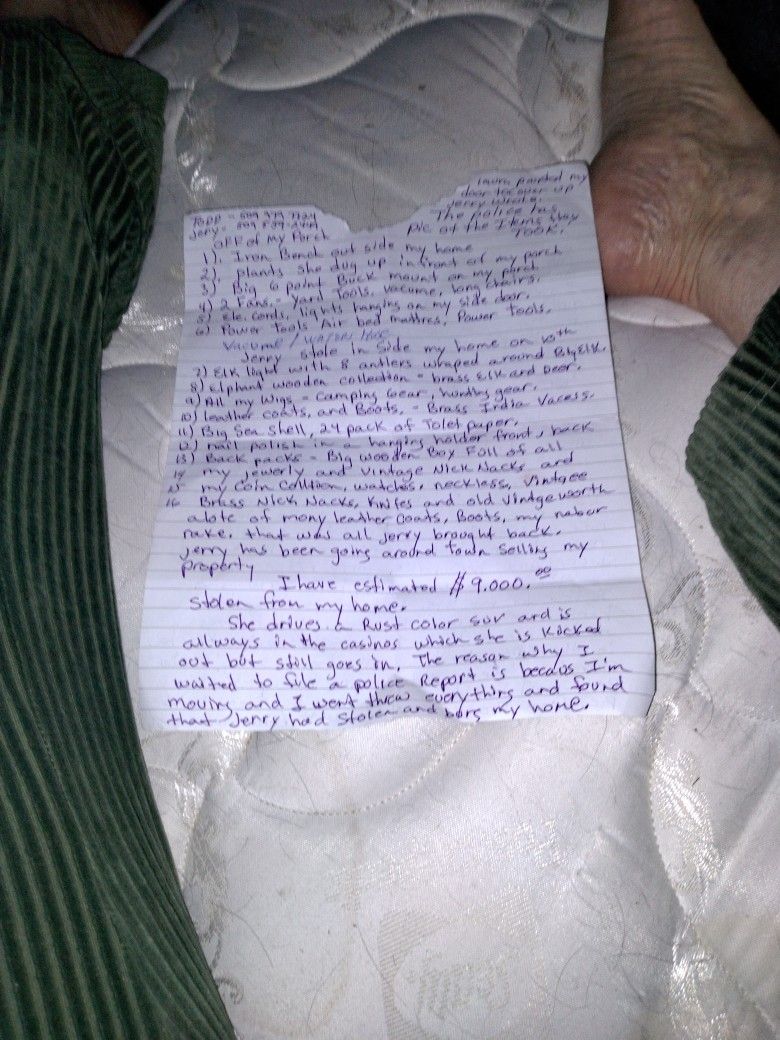 Laura painted my
door to cover up
Jerry wrote.
The police has
pic of the Items they
TOOK.
Todd = 509
Jerry = 509
OFF of my Porch
1). Iron Bench out side my home
2) plants she dug up in front of my porch
3) Big 6 point Buck mount on my porch
4) 2 Fans, = Yard Tools, Vacume, long chairs.
5) ele. cords, lights hanging on my side door,
6) Power Tools Air bed mattres, Power Tools,
Vacume / Water Hose
Jerry stole in side my home on 10th
7) Elk light with 8 antlers wraped around Big Elk.
8) elphant wooden collection = brass elk and Deer.
9) All my Wigs = camping Gear, hunting gear.
10) leather coats, and Boots, = Brass India Vacess.
11) Big Sea shell, 24 pack of Tolet paper.
12) nail polish in a hanging holder front, back
13) Back packs = Big wooden Box Foll of all
14 my jewerly and Vintage Nick Nacks and
15 my Coin Colltion, watches, neckless, vintgee
16 Brass Nick Nacks, Knifes and old Vintge worth
alote of mony leather coats, Boots, my nabor
rake. that was all Jerry brought back.
Jerry has been going around town selling my
property
I have estimated $ 9.000.00
stolen from my home.
She drives a Rust color SUV and is
allways in the casinos which she is kicked
out but still goes in, The reason why I
waited to file a police Report is becaus I'm
moving and I went threw everything and found
that Jerry had stolen and my home.